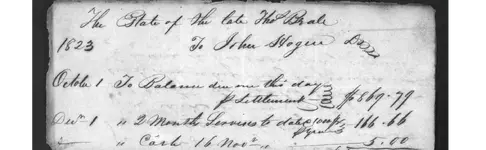 The State of the late Thos Beale
1823 To John Hogan Dr
Octobr 1 To Balance due me this day
pr Settlement $869.79
Decr 1 " 2 Month Services to date 166.66
" Cash 16 Novr " 5.00